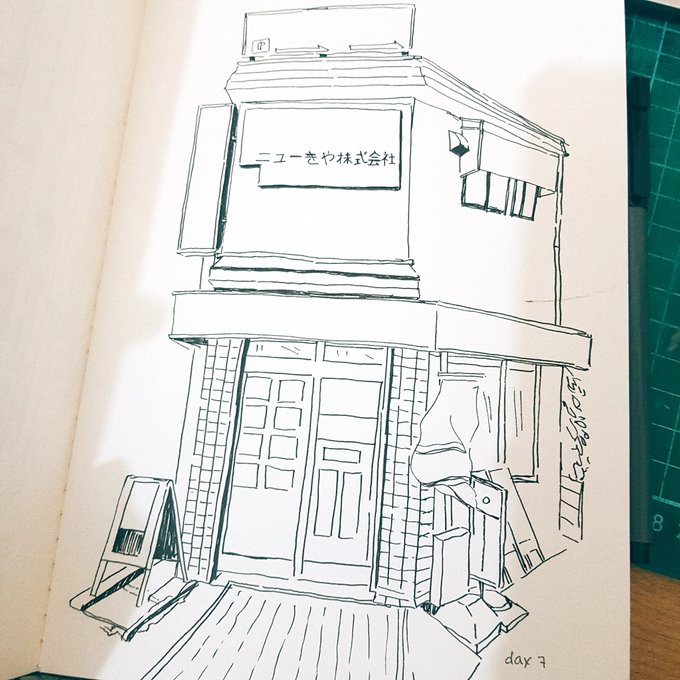 ニューきや株式会社
8
dax 7